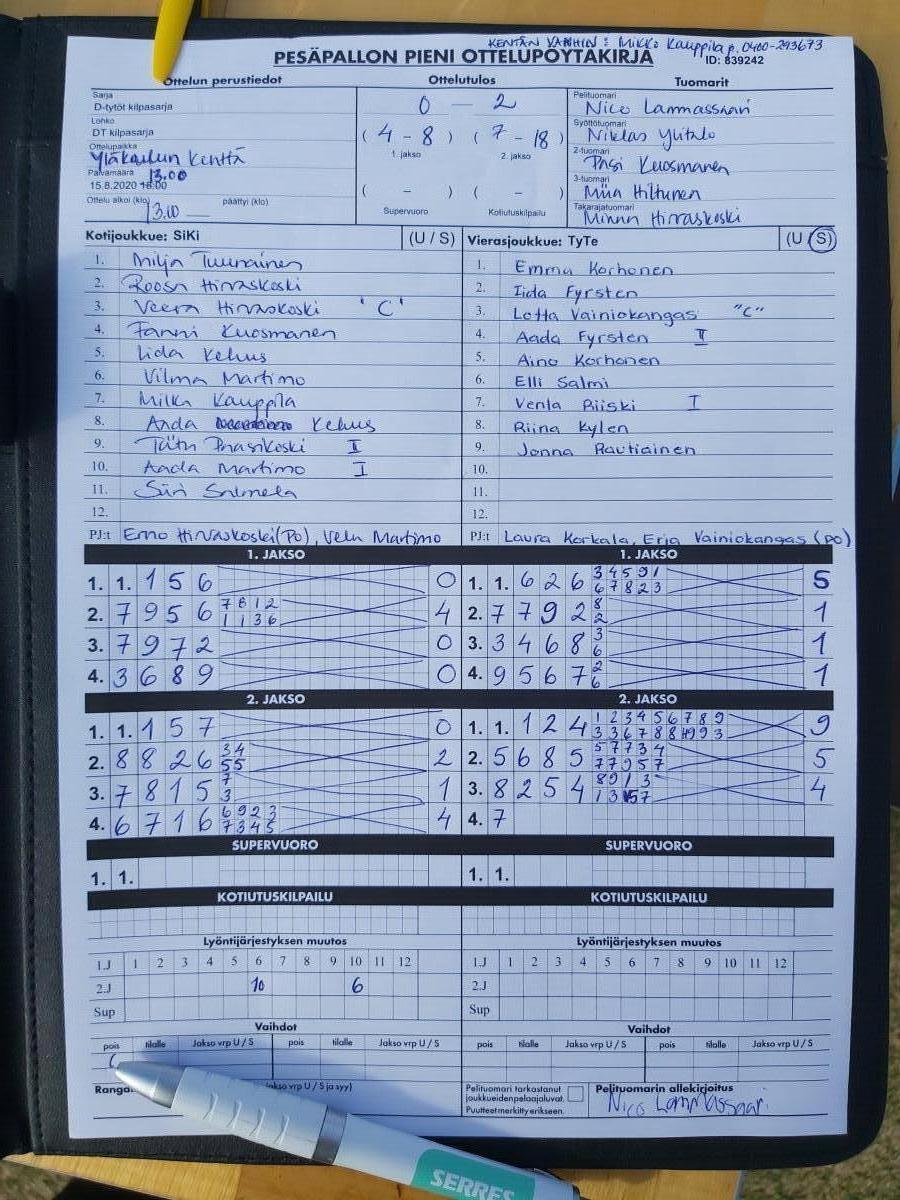 KENTÄN VANHIN: Mikko Kauppila p. 0400-293673
PESÄPALLON PIENI OTTELUPÖYTÄKIRJA ID: 839242
Ottelun perustiedot
Sarja
D-tytöt kilpasarja
Lohko
DT kilpasarja
Ottelupaikka
Yläkoulun Kenttä
Päivämäärä 13.00
15.8.2020 16:00
Ottelu alkoi (klo) päättyi (klo)
13.00
Ottelutulos
0 — 2
( 4 - 8 ) ( 7 - 18 )
1. jakso 2. jakso
( - ) ( - )
Supervuoro Kotiutuskilpailu
Tuomarit
Pelituomari
Nico Lammassaari
Syöttötuomari
Niklas Ylitalo
2-tuomari
Pasi Kuosmanen
3-tuomari
Miia Hiltunen
Takarajatuomari
Minna Hirvaskoski
Kotijoukkue: SiKi (U / S)
1. Milja Tuunainen
2. Roosa Hirvaskoski
3. Veera Hirvaskoski 'C'
4. Fanni Kuosmanen
5. Iida Kehus
6. Vilma Martimo
7. Milka Kauppila
8. Aada Kehus
9. II
10. Aada Martimo I
11. Siiri Salmela
12.
PJ:t Erno Hirvaskoski (PO), Vela Martimo
Vierasjoukkue: TyTe (U / S)
1. Emma Korhonen
2. Iida Fyrsten
3. Lotta Vainiokangas "C"
4. Aada Fyrsten II
5. Aino Korhonen
6. Elli Salmi
7. Venla Piiski I
8. Riina Kylen
9. Jonna Rautiainen
10.
11.
12.
PJ:t Laura Korkala, Erja Vainiokangas (PO)
1. JAKSO
1. 1. 1 5 6 0
2. 7 9 5 6 7 8 1 2 4
1 1 3 6
3. 7 9 7 2 0
4. 3 6 8 9 0
1. JAKSO
1. 1. 6 2 6 3 4 5 9 1 5
6 7 8 2 3
2. 7 7 9 2 8 1
2
3. 3 4 6 8 3 1
6
4. 9 5 6 7 2 1
6
2. JAKSO
1. 1. 1 5 7 0
2. 8 8 2 6 3 4 2
5 5
3. 7 8 1 5 7 1
3
4. 6 7 1 6 6 9 2 3 4
7 3 4 5
2. JAKSO
1. 1. 1 2 4 1 2 3 4 5 6 7 8 9 9
3 3 6 7 8 8 9 9 3
2. 5 6 8 5 5 7 7 3 4 5
7 7 9 5 7
3. 8 2 5 4 8 9 1 3 4
1 3 5 7
4. 7
SUPERVUORO
1. 1.
SUPERVUORO
1. 1.
KOTIUTUSKILPAILU
KOTIUTUSKILPAILU
Lyöntijärjestyksen muutos
1.J 1 2 3 4 5 6 7 8 9 10 11 12
2.J 10 6
Sup
Lyöntijärjestyksen muutos
1.J 1 2 3 4 5 6 7 8 9 10 11 12
2.J
Sup
Vaihdot
pois tilalle Jakso vrp U / S pois tilalle Jakso vrp U / S
Vaihdot
pois tilalle Jakso vrp U / S pois tilalle Jakso vrp U / S
vrp U / S ja syy)
Pelituomari tarkastanut
joukkueiden pelaajaluvat.
Puutteet merkitty erikseen.
Pelituomarin allekirjoitus
Nico Lammassaari
SERRES